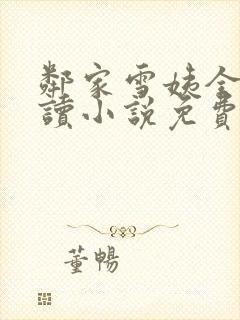 鄰家雪姨全
讀小說免費
董暢